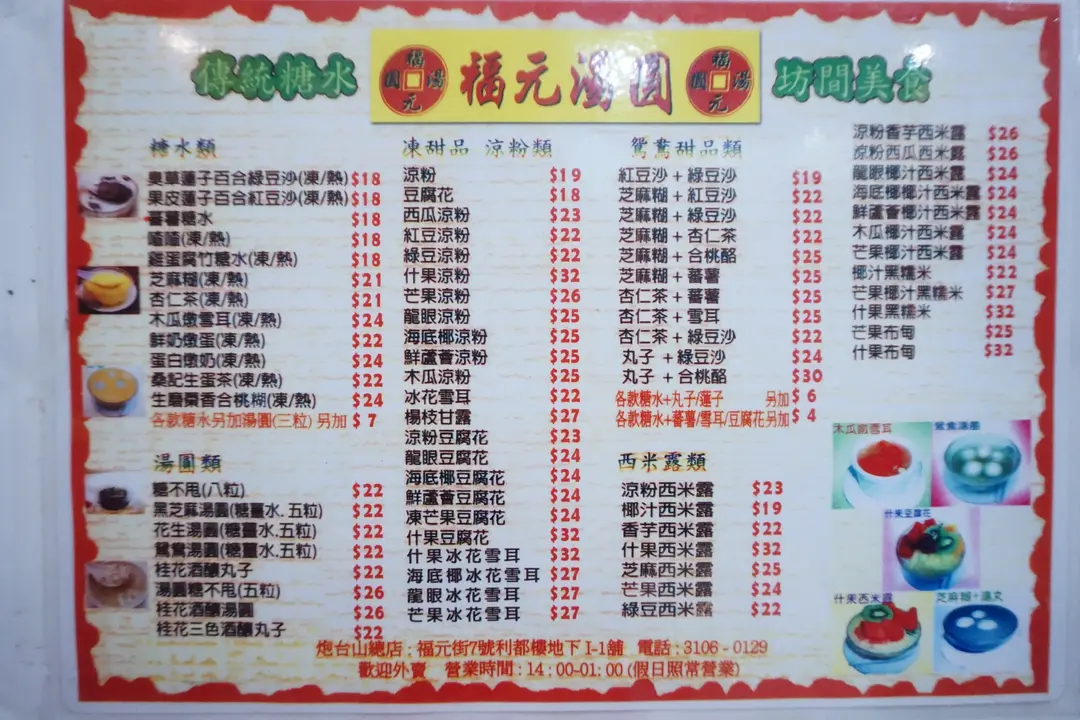 傳統糖水
福元湯圓
福元湯圓
福元湯圓
坊間美食
糖水類
臭草蓮子百合綠豆沙(凍/熱) $18
果皮蓮子百合紅豆沙(凍/熱) $18
蕃薯糖水 $18
喳喳(凍/熱) $18
雞蛋腐竹糖水(凍/熱) $18
芝麻糊(凍/熱) $21
杏仁茶(凍/熱) $21
木瓜燉雪耳(凍/熱) $24
鮮奶燉蛋(凍/熱) $22
蛋白燉奶(凍/熱) $24
桑記生蛋茶(凍/熱) $22
生磨棗香合桃糊(凍/熱) $24
各款糖水另加湯圓(三粒) 另加 $ 7
湯圓類
糖不甩(八粒) $22
黑芝麻湯圓(糖薑水.五粒) $22
花生湯圓(糖薑水.五粒) $22
鴛鴦湯圓(糖薑水.五粒) $22
桂花酒釀丸子 $22
湯圓糖不甩(五粒) $26
桂花酒釀湯圓 $26
桂花三色酒釀丸子 $22
凍甜品 涼粉類
涼粉 $19
豆腐花 $18
西瓜涼粉 $23
紅豆涼粉 $22
綠豆涼粉 $22
什果涼粉 $32
芒果涼粉 $26
龍眼涼粉 $25
海底椰涼粉 $25
鮮蘆薈涼粉 $25
木瓜涼粉 $25
冰花雪耳 $22
楊枝甘露 $27
涼粉豆腐花 $23
龍眼豆腐花 $24
海底椰豆腐花 $24
鮮蘆薈豆腐花 $24
凍芒果豆腐花 $24
什果豆腐花 $32
什果冰花雪耳 $32
海底椰冰花雪耳 $27
龍眼冰花雪耳 $27
芒果冰花雪耳 $27
鴛鴦甜品類
紅豆沙+綠豆沙 $19
芝麻糊+紅豆沙 $22
芝麻糊+綠豆沙 $22
芝麻糊+杏仁茶 $22
芝麻糊+合桃酪 $25
芝麻糊+蕃薯 $25
杏仁茶+蕃薯 $25
杏仁茶+雪耳 $25
杏仁茶+綠豆沙 $22
丸子+綠豆沙 $24
丸子+合桃酪 $30
各款糖水+丸子/蓮子 另加 $ 6
各款糖水+蕃薯/雪耳/豆腐花另加 $ 4
西米露類
涼粉西米露 $23
椰汁西米露 $19
香芋西米露 $22
什果西米露 $32
芝麻西米露 $25
芒果西米露 $24
綠豆西米露 $22
涼粉香芋西米露 $26
涼粉西瓜西米露 $26
龍眼椰汁西米露 $24
海底椰椰汁西米露 $24
鮮蘆薈椰汁西米露 $24
木瓜椰汁西米露 $24
芒果椰汁西米露 $24
椰汁黑糯米 $22
芒果椰汁黑糯米 $27
什果黑糯米 $32
芒果布甸 $25
什果布甸 $32
木瓜燉雪耳
鴛鴦湯圓
什果豆腐花
什果西米露
芝麻糊+蓮丸
炮台山總店:福元街7號利都樓地下 I-1舖 電話:3106-0129
歡迎外賣 營業時間:14:00-01:00(假日照常營業)